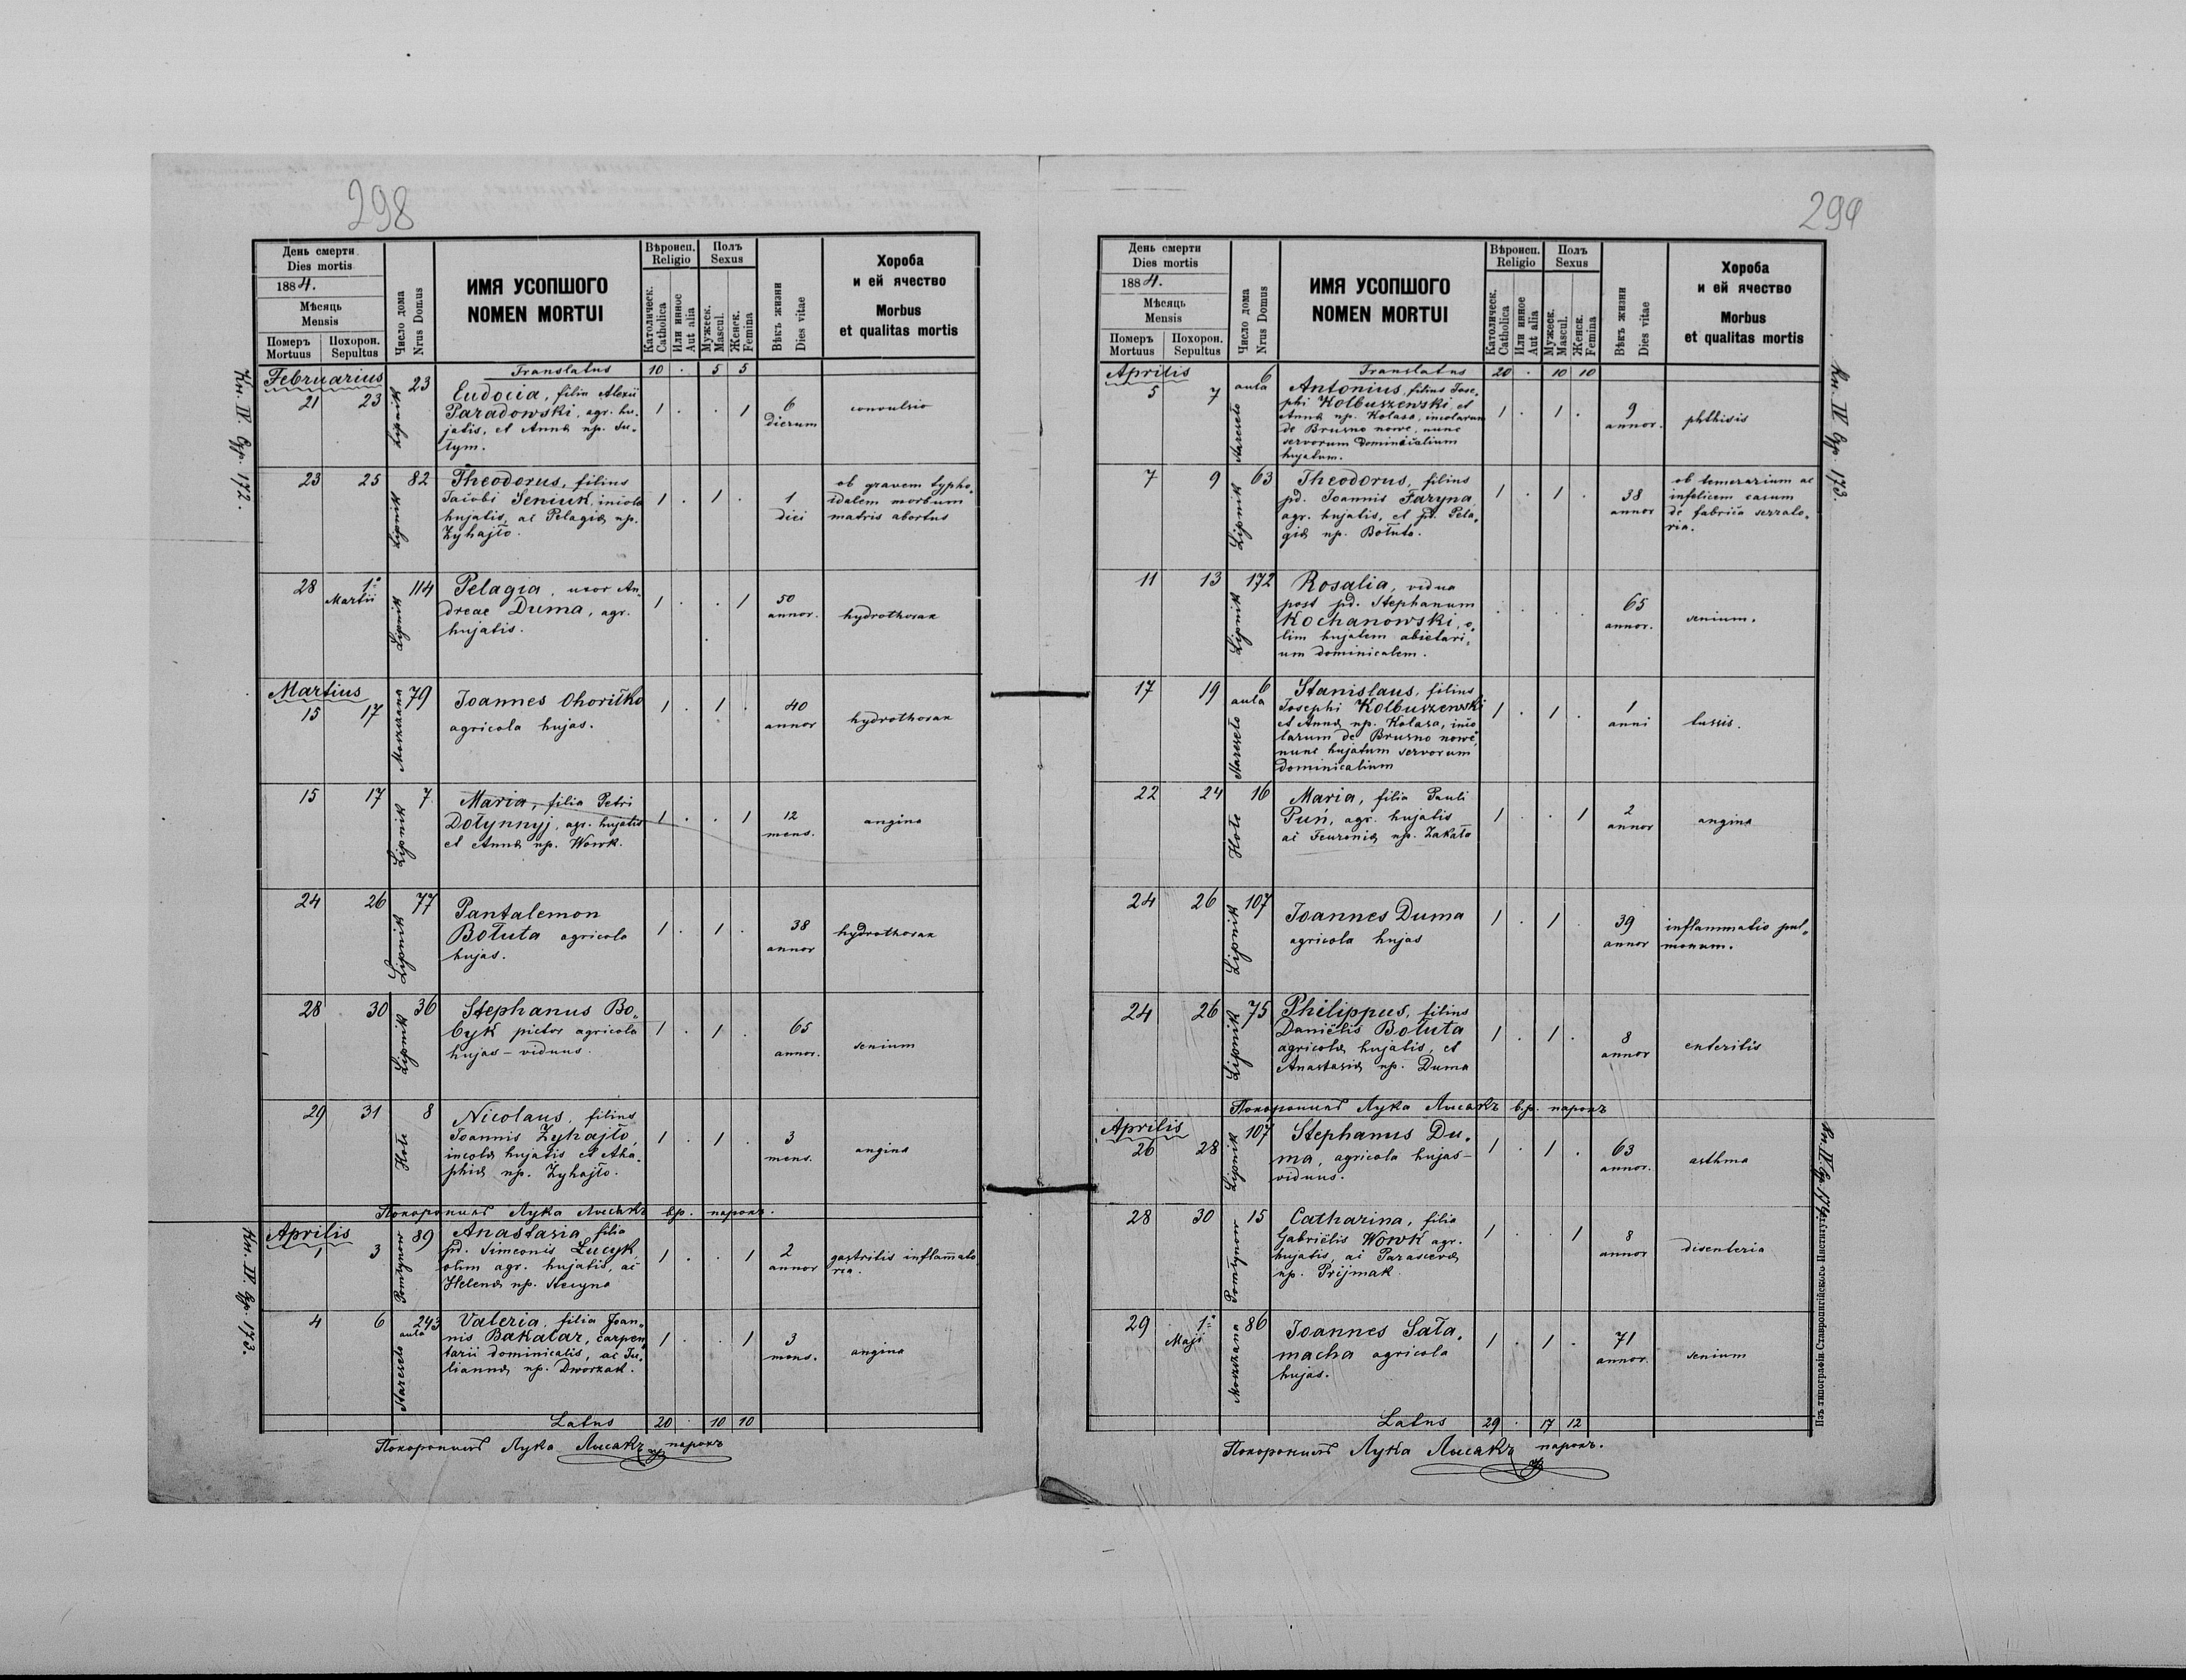 298
День смерти
Dies mortis
1884.
Мѣсяць
Mensis
Померъ
Mortuus
Похорон.
Sepultus
Число дома
Nrus Domus
ИМЯ УСОПШОГО
NOMEN MORTUI
Вѣроисп.
Religio
Католическ.
Catholica
Или инное
Aut alia
Полъ
Sexus
Мужеск.
Mascul.
Женск.
Femina
Вѣкъ жизни
Dies vitae
Хороба
и ей ячество
Morbus
et qualitas mortis
Кн. IV. Стр. 172.
Translatus 10 . 5 5
Februarius
21 23 Lipnik 23
Eudocia, filia Alexii
Paradowski, agr. hu-
jatis, et Anna np. Su-
tym.
1 . . 1
6
dierum
convulsio
23 25 Lipnik 82
Theodorus, filius
Jacobi Seniuk, incola
hujatis, ac Pelagia np.
Żyhajło.
1 . 1 .
1
diei
ob gravem typho-
idalem morbum
matris abortus
28 1° Martii Lipnik 114
Pelagia, uxor An-
dreae Duma, agr.
hujatis.
1 . . 1
50
annor.
hydrothorax
Martius
15 17 Moszczana 79
Joannes Ohoriłko
agricola hujas.
1 . 1 .
40
annor
hydrothorax
15 17 Lipnik 7
Maria, filia Petri
Dołynnyj, agr. hujatis
et Anna np. Wowk.
1 . . 1
12
mens.
angina
24 26 Lipnik 77
Pantalemon
Bołuta agricola
hujas.
1 . 1 .
38
annor
hydrothorax
28 30 Lipnik 36
Stephanus Bo-
byk pictor agricola
hujas - viduus.
1 . 1 .
65
annor.
senium
29 31 Hołe 8
Nicolaus, filius
Joannis Żyhajło,
incola hujatis et Aha-
phia np. Żyhajło.
1 . 1 .
3
mens.
angina
Похоронилъ Лука Лисакъ вр. парохъ.
Aprilis
1 3 89
Anastasia filia
pd. Simeonis Łucyk,
olim agr. hujatis, ac
Helena np. Stecyna
1 . . 1
2
annor
gastritis inflam̄ato
ria.
4 6 Stareseło aula 243
Valeria, filia Joan-
nis Bakalar, carpen
tarii dominicalis, ac Ju-
lianna np. Dworzak.
1 . . 1
3
mens.
angina
Latus 20 . 10 10
Похоронилъ Лука Лисакъ парохъ
Кн. IV. Стр. 173.
299
День смерти
Dies mortis
1884.
Мѣсяць
Mensis
Померъ
Mortuus
Похорон.
Sepultus
Число дома
Nrus Domus
ИМЯ УСОПШОГО
NOMEN MORTUI
Вѣроисп.
Religio
Католическ.
Catholica
Или инное
Aut alia
Полъ
Sexus
Мужеск.
Mascul.
Женск.
Femina
Вѣкъ жизни
Dies vitae
Хороба
и ей ячество
Morbus
et qualitas mortis
Кн. IV Стр. 173.
Translatus 20 . 10 10
Aprilis
5 7 Stareseło aula 6
Antonius, filius Jose-
phi Kolbuszewski, et
Anna np. Kolasa, incolarum
de Brusno nowe, nunc
servorum dominicalium
hujatum.
1 . 1 .
9
annor.
phthisis
7 9 Lipnik 63
Theodorus, filius
pd. Joannis Faryna
agr. hujatis, et pd. Pela-
gia np. Bołuta.
1 . 1 .
38
annor
ob temerarium ac
infelicem casum
de fabrica serrato-
ria.
11 13 Lipnik 172
Rosalia, vidua
post pd. Stephanum
Kochanowski, o-
lim hujatem abietari-
um dominicalem.
. . . .
65
annor.
senium.
17 19 Stareseło aula 6
Stanislaus, filius
Josephi Kolbuszewski
et Anna np. Kolasa, inco
larum de Brusno nowe,
nunc hujatum servorum
dominicalium
1 . 1 .
1
anni
tussis.
22 24 Hołe 16
Maria, filia Pauli
Puń, agr. hujatis
ac Feuronia np. Zakała
1 . . 1
2
annor
angina
24 26 Lipnik 107
Joannes Duma
agricola hujas
1 . 1 .
39
annor
inflammatio pul-
monum.
24 26 Lipnik 75
Philippus, filius
Daniëlis Bołuta
agricola hujatis, et
Anastasia np. Duma
1 . 1 .
8
annor
enteritis
Похоронилъ Лука Лисакъ в.р. парохъ
Aprilis
26 28 Lipnik 107
Stephanus Du-
ma, agricola hujas -
viduus.
1 . 1 .
63
annor.
asthma
28 30 15
Catharina, filia
Gabriëlis Wowk agr.
hujatis, ac Parasceva
np. Prijmak.
1 . . 1
8
annor
disenteria
29 1° Maji Moszczana 86
Joannes Sała-
macha agricola
hujas.
1 . 1 .
71
annor.
senium
Latus 29 . 17 12
Похоронилъ Лука Лисакъ парохъ.
Кн. IV. Стр. 174.
Изъ типографіи Ставропигійского Института